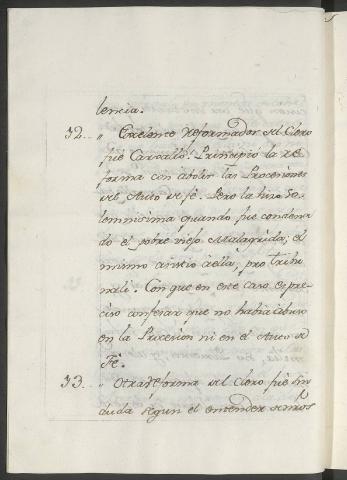 lencia.
32.. „ Excelente Reformador del Clero
fue Carvallo! Principió la re
forma con abolir las Procesiones
del Auto de fé. Pero la hizo so
lemnisima quando fue condena
do el pobre viejo Malagrida; el
mismo asistió à ella, pro tribu
nali. Con que en este caso es pre
ciso confesar que no habia abuso
en la Procesion ni en el Auto de
Fé.
33. „ Otra reforma del Clero fue sin
duda segun el entender de